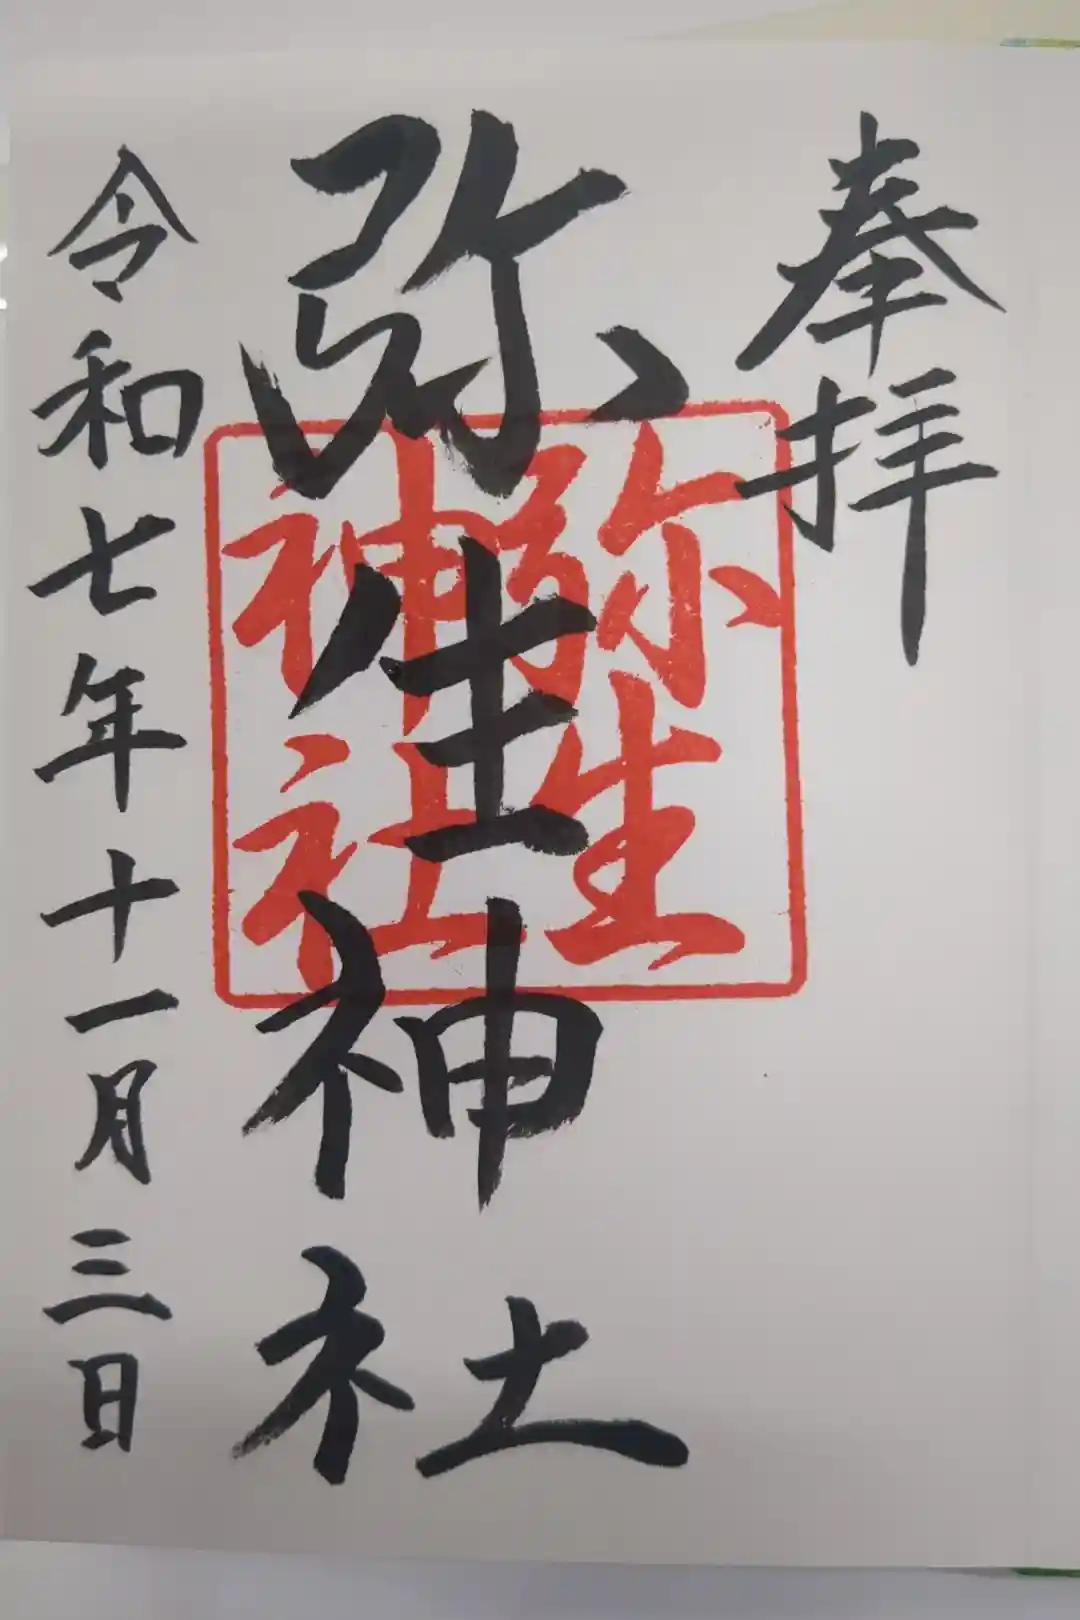 奉拝
弥生神社
弥生
神社
令和七年十一月三日